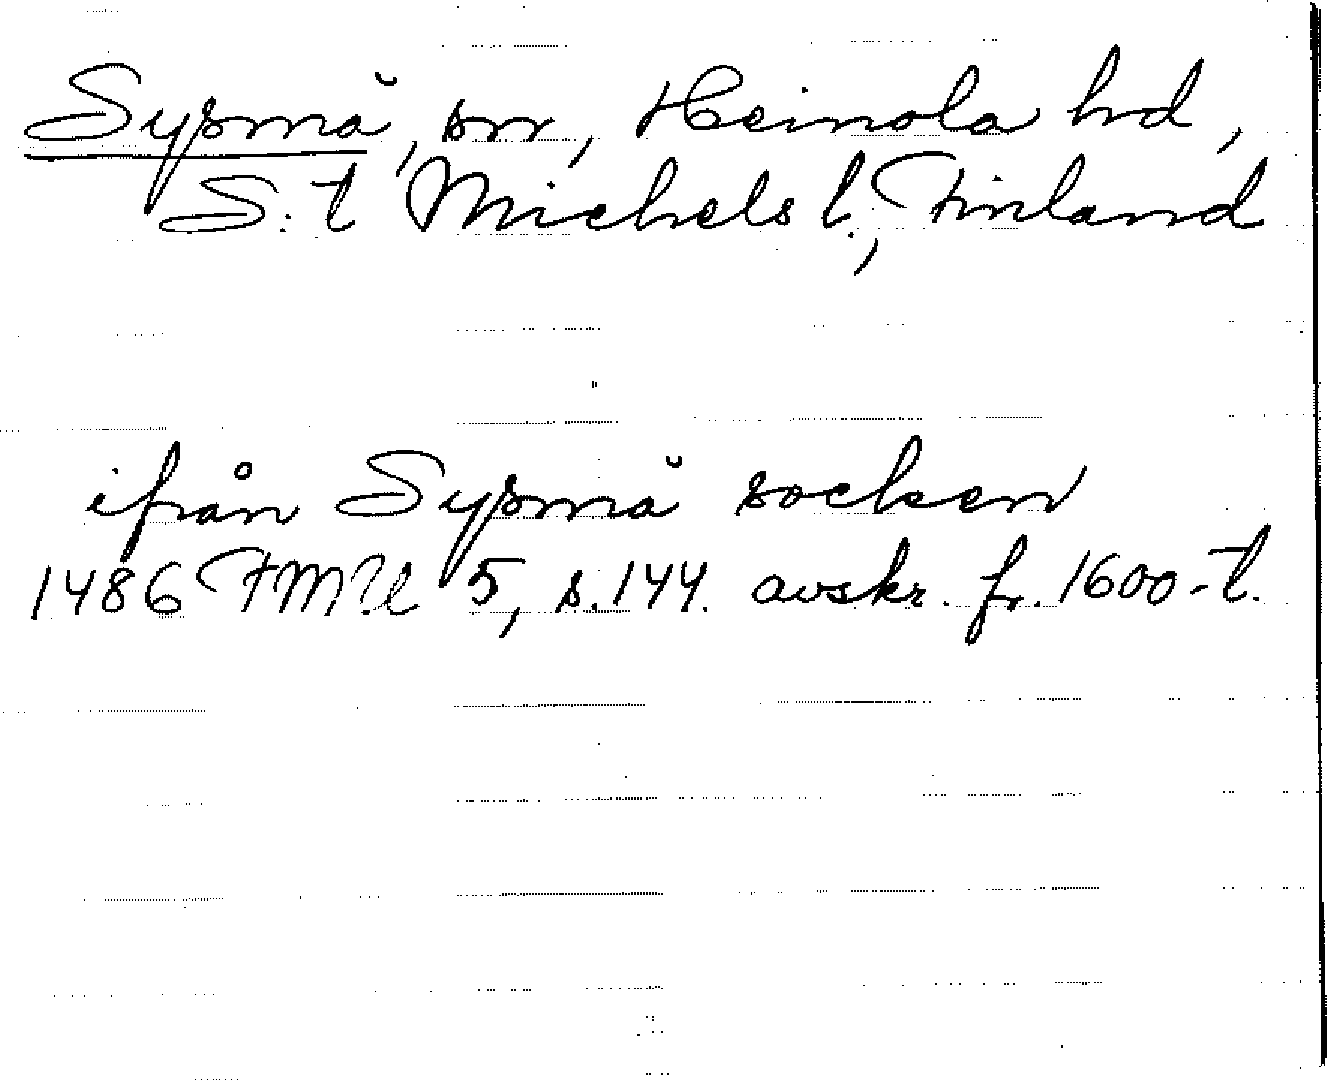 Sysmä, sn, Heinola hd,
S:t Michels l., Finland
ifrån Sysmä socken
1486 FMU 5, s. 144. avskr. fr. 1600-t.